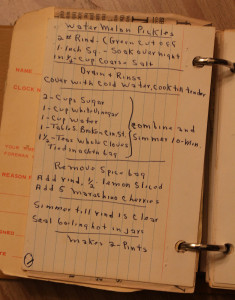 Water Melon Pickles
2# Rind - (Green Cut off
1 Inch Sq. - Soak over night
in ½-Cup Coarse Salt
Drain + Rinse
Cover with cold water, cook till tender
2-Cups Sugar
1-Cup White Vinegar
1-Cup Water
1-Tabls. Broken Cin St.
1½-Teas Whole Cloves
Tied in cotton bag
combine and
Simmer 10-Min.
Remove Spice bag
Add rind, ½ lemon Sliced
Add 5 maraschino cherries
Simmer till rind is clear
Seal boiling hot in jars
Makes 2-Pints
NAME
CLOCK
REASON